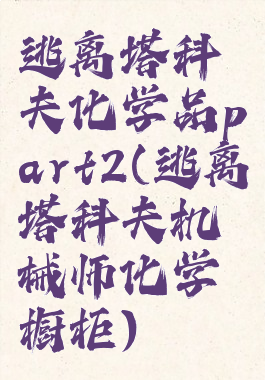 逃离塔科
夫化学品p
art2(逃离
塔科夫机
械师化学
橱柜)